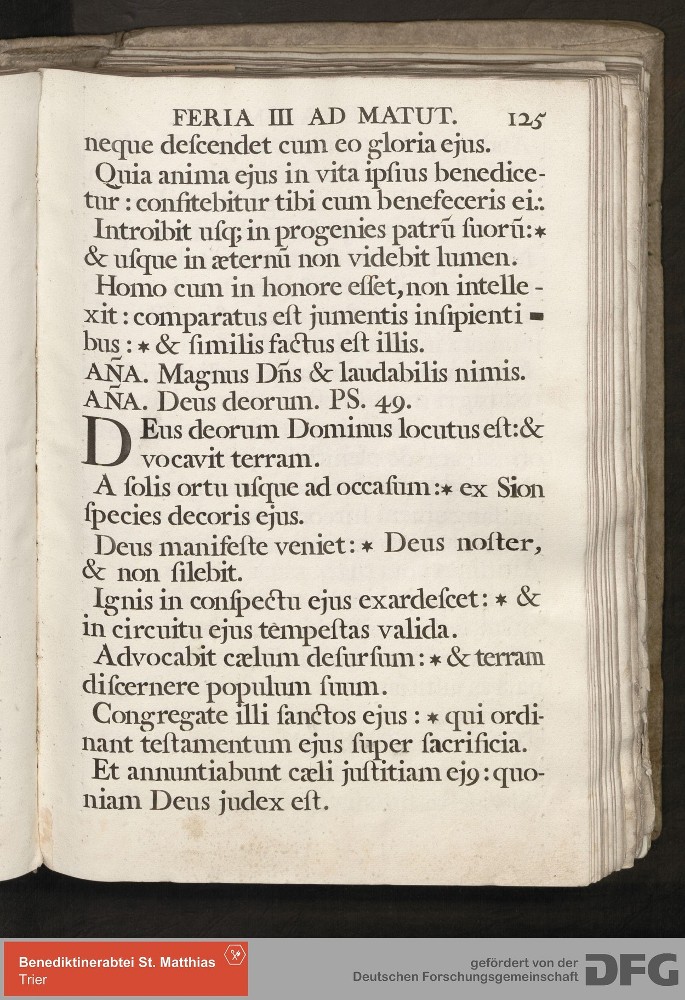 FERIA III AD MATUT. 125
neque deſcendet cum eo gloria ejus.
Quia anima ejus in vita ipſius benedice-
tur : confitebitur tibi cum benefeceris ei.:
Introibit uſq; in progenies patrũ ſuorũ:*
& uſque in æternũ non videbit lumen.
Homo cum in honore eſſet, non intelle -
xit : comparatus eſt jumentis inſipienti -
bus : * & ſimilis factus eſt illis.
AÑA. Magnus Dñs & laudabilis nimis.
AÑA. Deus deorum. PS. 49.
DEus deorum Dominus locutus eſt:&
vocavit terram.
A ſolis ortu uſque ad occaſum :* ex Sion
ſpecies decoris ejus.
Deus manifeſte veniet : * Deus noſter,
& non ſilebit.
Ignis in conſpectu ejus exardeſcet : * &
in circuitu ejus tèmpeſtas valida.
Advocabit cælum deſurſum : * & terram
diſcernere populum ſuum.
Congregate illi ſanctos ejus : * qui ordi-
nant teſtamentum ejus ſuper ſacrificia.
Et annuntiabunt cæli juſtitiam ej9 : quo-
niam Deus judex eſt.
Benediktinerabtei St. Matthias
Trier
gefördert von der
Deutschen Forschungsgemeinschaft DFG